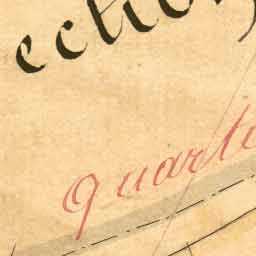 ection
quarte